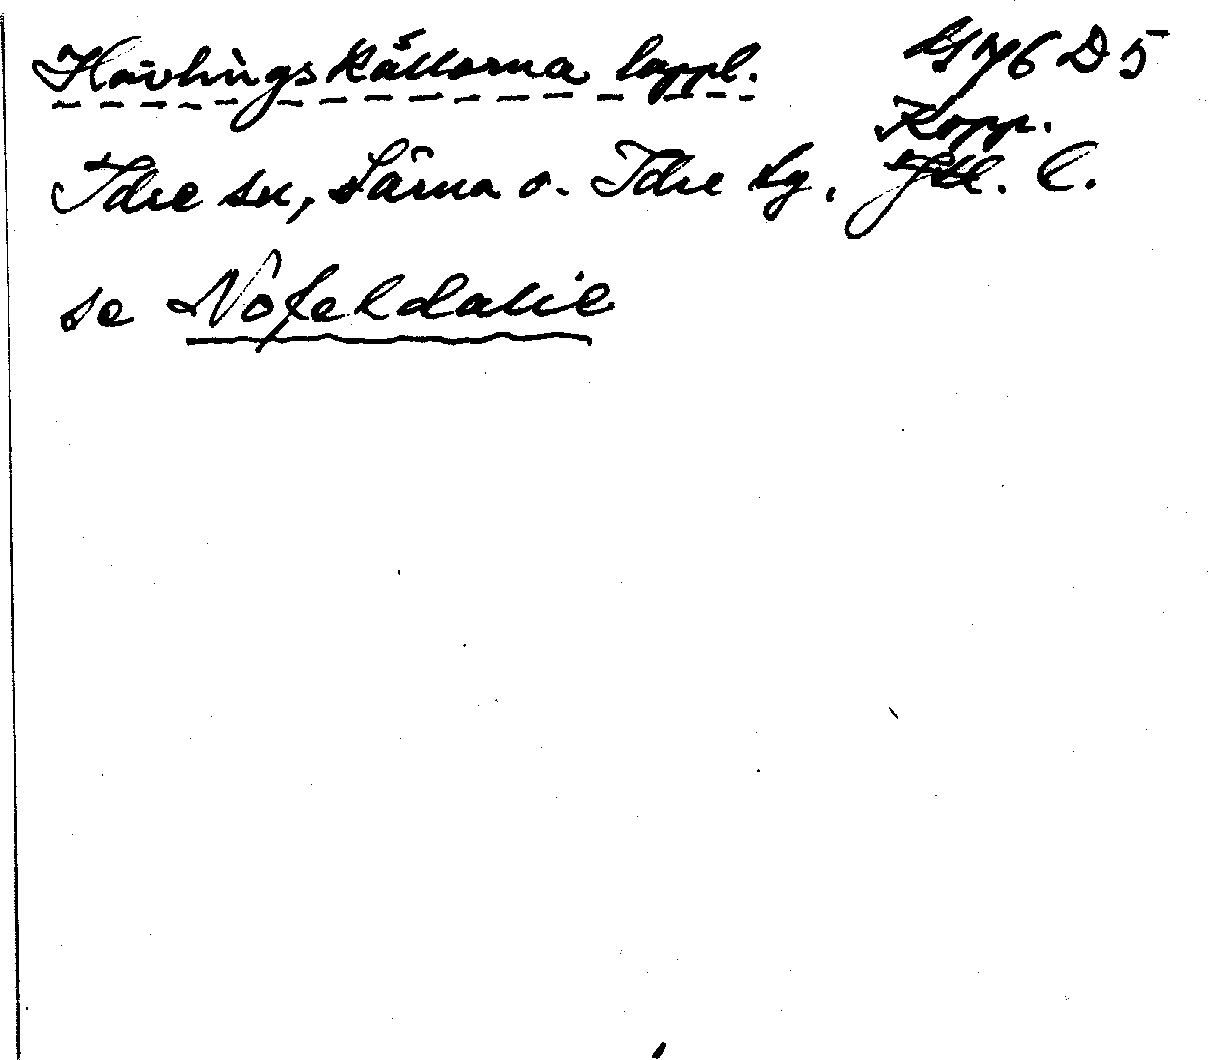 Hävlingskällorna lappl. GV6 D5
Kopp.
Idre sn, Särna o. Idre tg, Jtl. l.
se Nöfeldalie